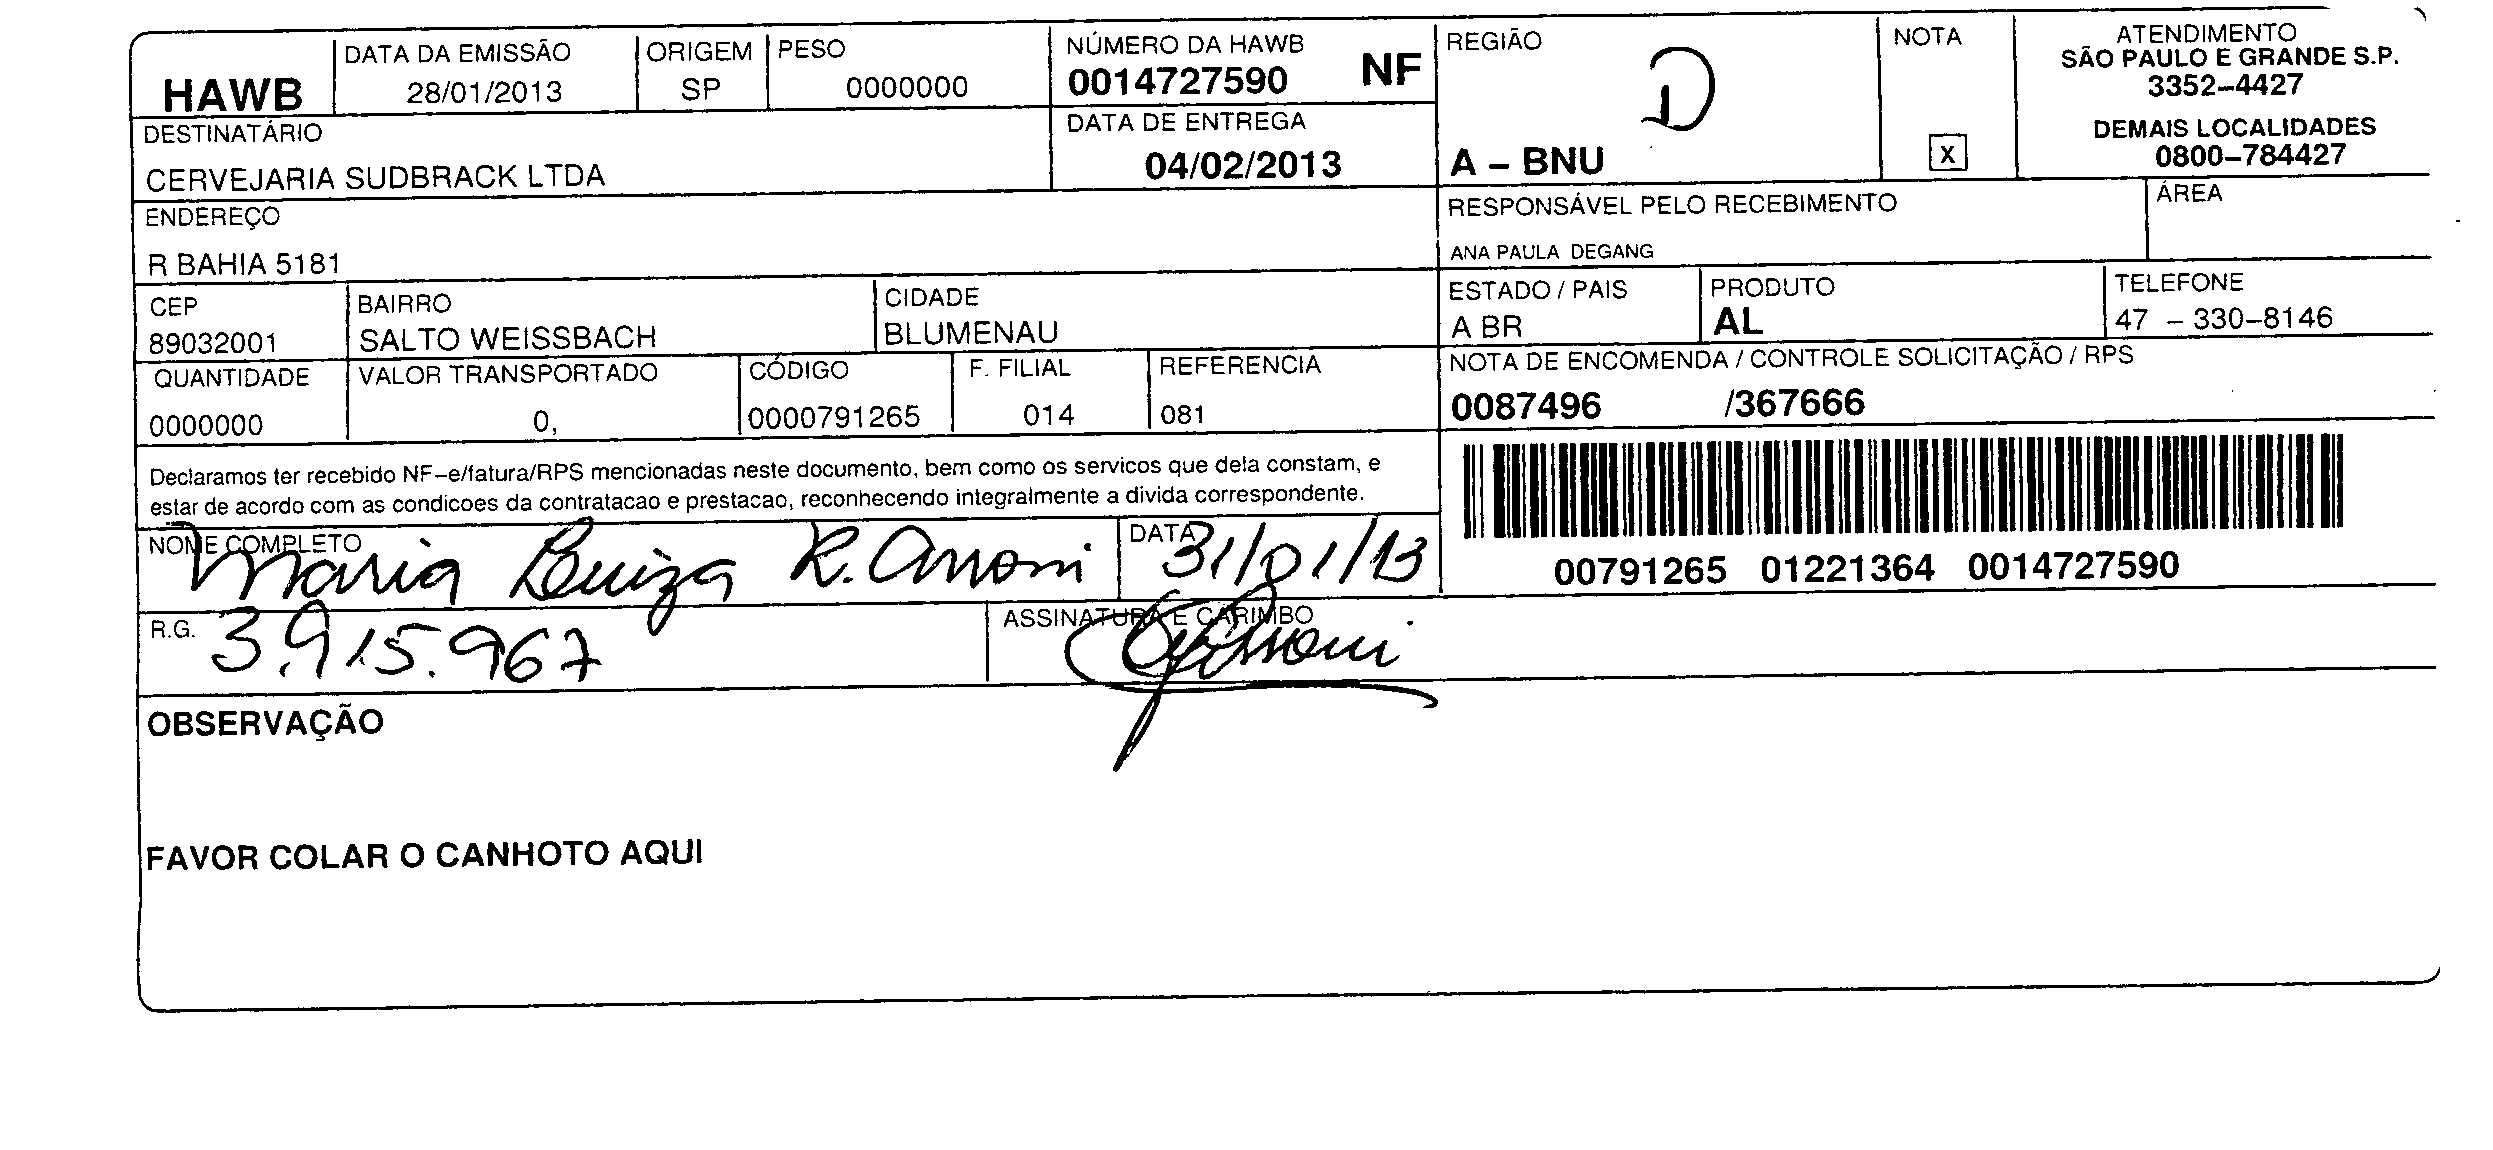 HAWB
DATA DA EMISSÃO
28/01/2013
ORIGEM
SP
PESO
0000000
NÚMERO DA HAWB
0014727590 NF
REGIÃO
D
A – BNU
NOTA
X
ATENDIMENTO
SÃO PAULO E GRANDE S.P.
3352–4427
DEMAIS LOCALIDADES
0800–784427
DESTINATÁRIO
CERVEJARIA SUDBRACK LTDA
DATA DE ENTREGA
04/02/2013
ENDEREÇO
R BAHIA 5181
RESPONSÁVEL PELO RECEBIMENTO
ANA PAULA DEGANG
ÁREA
CEP
89032001
BAIRRO
SALTO WEISSBACH
CIDADE
BLUMENAU
ESTADO / PAIS
A BR
PRODUTO
AL
TELEFONE
47 – 330–8146
QUANTIDADE
0000000
VALOR TRANSPORTADO
0,
CÓDIGO
0000791265
F. FILIAL
014
REFERENCIA
081
NOTA DE ENCOMENDA / CONTROLE SOLICITAÇÃO / RPS
0087496 /367666
Declaramos ter recebido NF–e/fatura/RPS mencionadas neste documento, bem como os servicos que dela constam, e
estar de acordo com as condicoes da contratacao e prestacao, reconhecendo integralmente a divida correspondente.
00791265 01221364 0014727590
NOME COMPLETO
Maria Luiza R.
DATA
31/01/13
R.G.
3.915.967
ASSINATURA E CARIMBO
OBSERVAÇÃO
FAVOR COLAR O CANHOTO AQUI